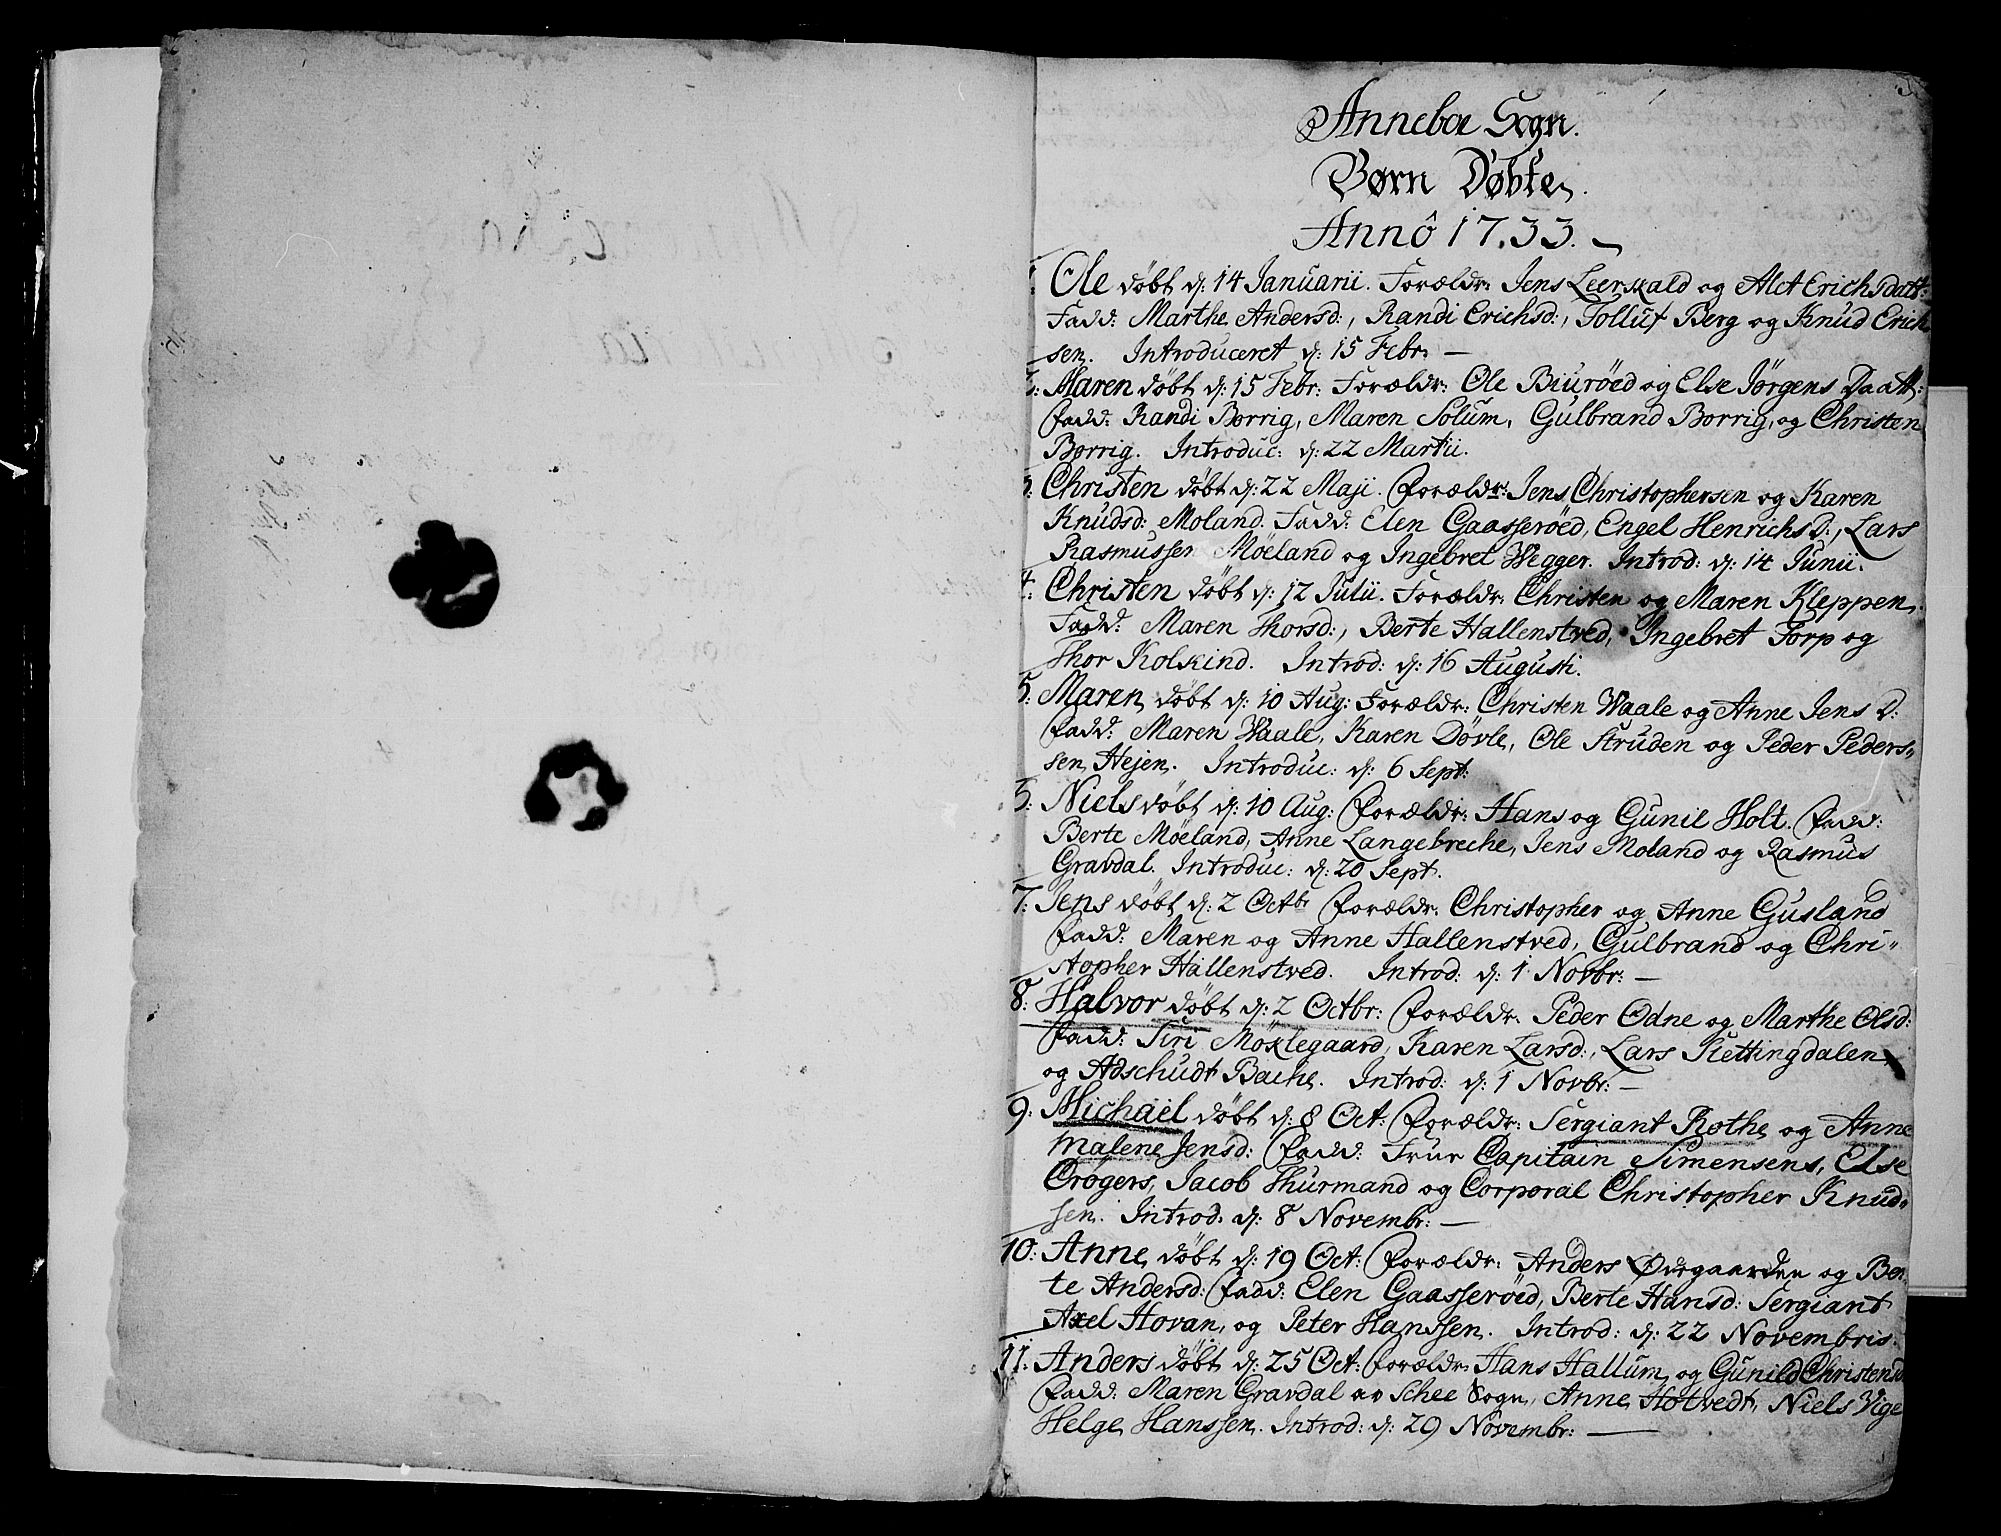 Anneboe Sogn.
Børn Døbte.
Annô 1733.
1: Ole døbt d: 14 Januarii. Forældr: Jens Leerskald og Alet Erichsdatt:
Fadd: Marthe Andersd:, Randi Erichsd:, Tolluf Berg og Knud Erich
sen. Introduceret d: 15 Febr: —
2: Maren døbt d: 15 Febr: Forældr: Ole Biurøed og Else Jørgens Daatt:
Fadd: Randi Borrig, Maren Solum, Gulbrand Borrig, og Christen
Borrig. Introduc: d: 22 Martii.
3: Christen døbt d: 22 Maji. Forældr: Jens Christophersen og Karen
Knudsd: Moland. Fadd: Elen Gaasserøed, Engel Henrichsd:, Lars
Rasmussen Møeland og Ingebret Wegger. Introd: d: 14 Junii.
4: Christen døbt d: 12 Julii. Forældr: Christen og Maren Kleppen.
Fadd: Maren Thorsd:, Berte Hallenstved, Ingebret Torp og
Thor Kolkind. Introd: d: 16 Augusti.
5: Maren døbt d: 10 Aug: Forældr: Christen Waale og Anne Jens D:
Fadd: Maren Waale, Karen Døvle, Ole Struden og Peder Peders„
sen Hejen. Introduc: d: 6 Sept:
5: Niels døbt d: 10 Aug: Forældr: Hans og Gunil Holt. Fadd:
Berte Møeland, Anne Langebreche, Jens Moland og Rasmus
Gravdal. Introduc: d: 20 Sept.
7: Jens døbt d: 2 Octbr Forældr: Christopher og Anne Gusland
Fadd: Maren og Anne Hallenstved, Gulbrand og Chri„
stopher Hallenstved. Introd: d: 1 Novbr: —
8: Halvor døbt d: 2 Octbr: Forældr: Peder Odne og Marthe Olsd:
Fadd: Siri Møklegaard, Karen Larsd:, Lars Slettingdalen
og Adschudt Bache. Introd: d: 1 Novbr: —
9: Michäel døbt d: 8 Oct: Forældr: Sergiant Rothe og Anne
Malene Jensd: Fadd: Frue Capitain Simensens, Else
Crøgers, Jacob Thurmand og Corporal Christopher Knud„
sen. Introd: d: 8 Novembr: —
10: Anne døbt d: 19 Oct: Forældr: Anders Øvegaarden og Ber„
te Andersd: Fadd: Elen Gaasserøed, Berte Hansd: Sergiant
Axel Hovan, og Peter Hanssen. Introd: d: 22 Novembris.
11: Anders døbt d: 25 Oct: Forældr: Hans Hallum og Gunild Christensd
Fadd: Maren Gravdal av Schee Sogn, Anne Hotvedt, Niels Vige
Helge Hanssen. Introd: d: 29 Novembr: —